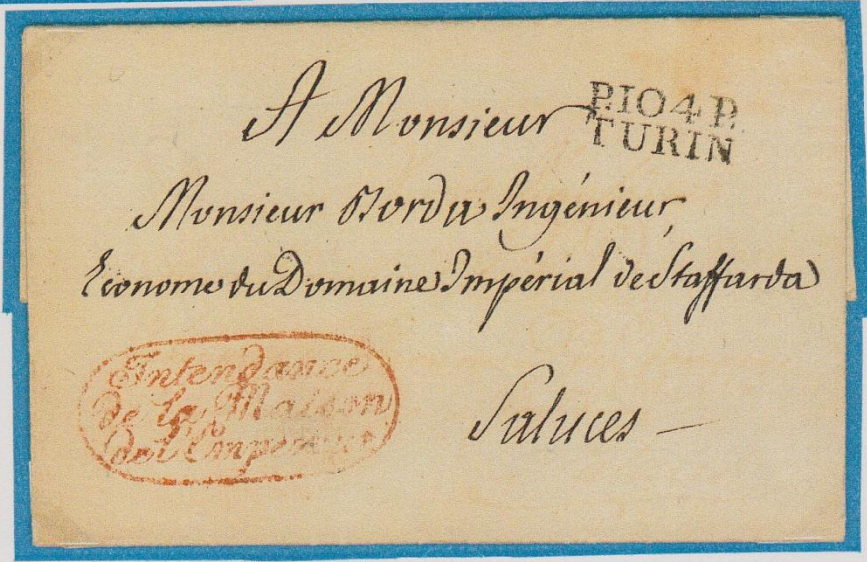 P.104.P.
TURIN
A Monsieur
Monsieur Borda Ingénieur
Econome du Domaine Impérial de Staffarda
Saluces
Intendance
de la Maison
de l'Empereur